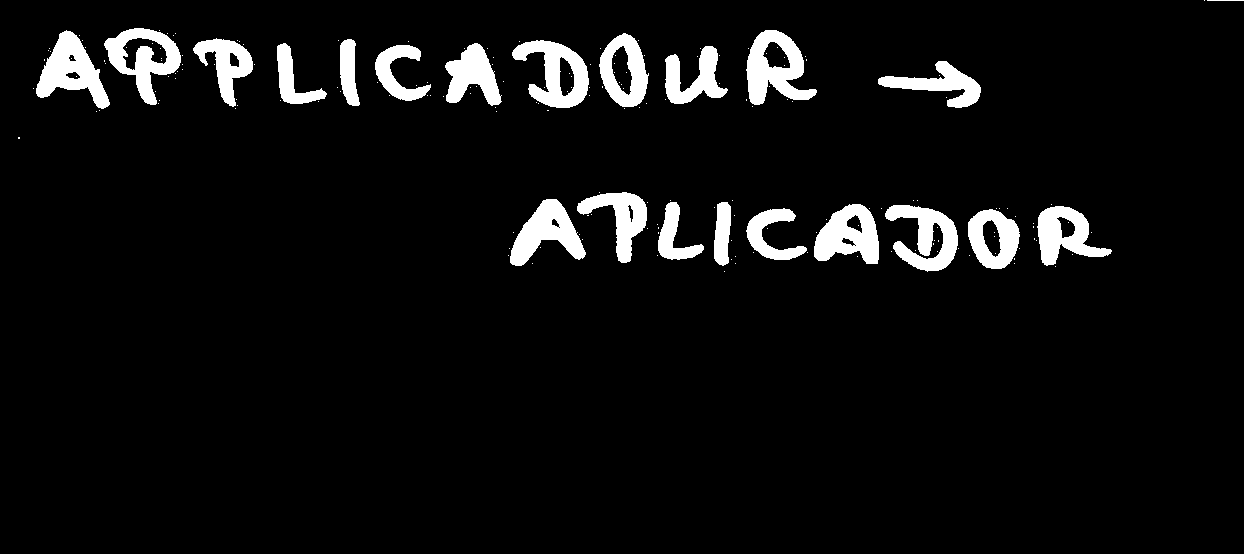 APPLICADOUR →
APLICADOR